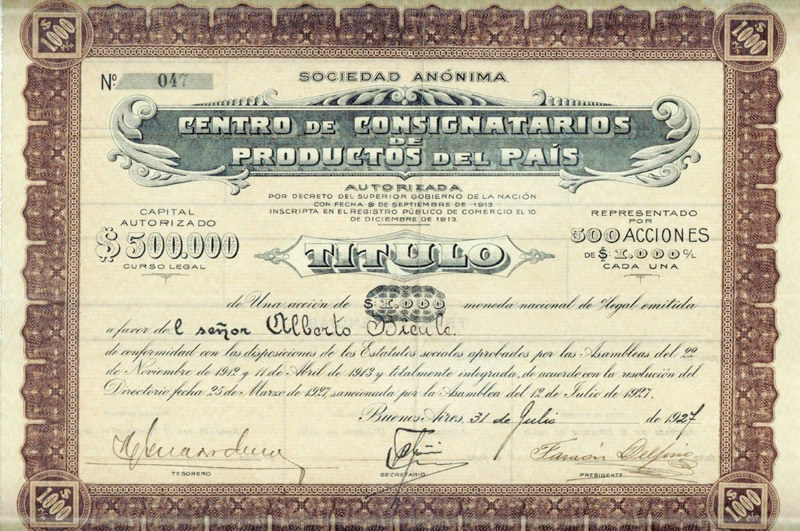 $ 1.000 c/l
$ 1.000 c/l
Nº 047
SOCIEDAD ANÓNIMA
CENTRO DE CONSIGNATARIOS
DE
PRODUCTOS DEL PAÍS
AUTORIZADA
POR DECRETO DEL SUPERIOR GOBIERNO DE LA NACIÓN
CON FECHA 9 DE SEPTIEMBRE DE 1913
INSCRIPTA EN EL REGISTRO PÚBLICO DE COMERCIO EL 10
DE DICIEMBRE DE 1913.
CAPITAL
AUTORIZADO
$ 500.000
CURSO LEGAL
REPRESENTADO
POR
500 ACCIONES
DE $ 1.000 c/l
CADA UNA
TITULO
de Una acción de $ 1.000 moneda nacional de legal emitida
a favor de l señor Alberto
de conformidad con las disposiciones de los Estatutos sociales aprobados por las Asambleas del 22
de Noviembre de 1912 y 11 de Abril de 1913 y totalmente integrada, de acuerdo con la resolución del
Directorio fecha 25 de Marzo de 1927, sancionada por la Asamblea del 12 de Julio de 1927.
Buenos Aires, 31 de Julio de 1927
Ramón Delfino
TESORERO
SECRETARIO
PRESIDENTE
$ 1.000 c/l
$ 1.000 c/l